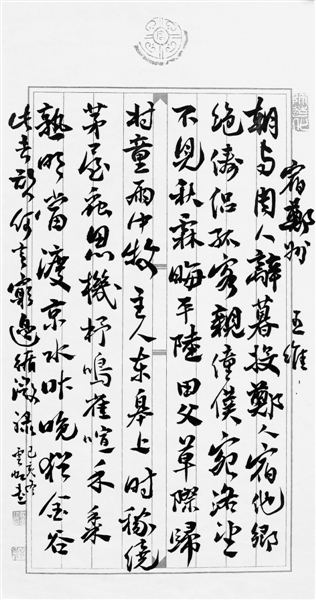 宿鄭州 王維
朝与周人辭暮投鄭人宿他鄉
绝儔侣孤客親僮僕宛洛望
不見秋霖晦平陸田父草際歸
村童雨中牧主人东皋上时稼繞
茅屋蟲思機杼鳴雀喧禾黍
熟明當渡京水昨晚猶金谷
此去欲何言窮邊循微禄
己亥冬